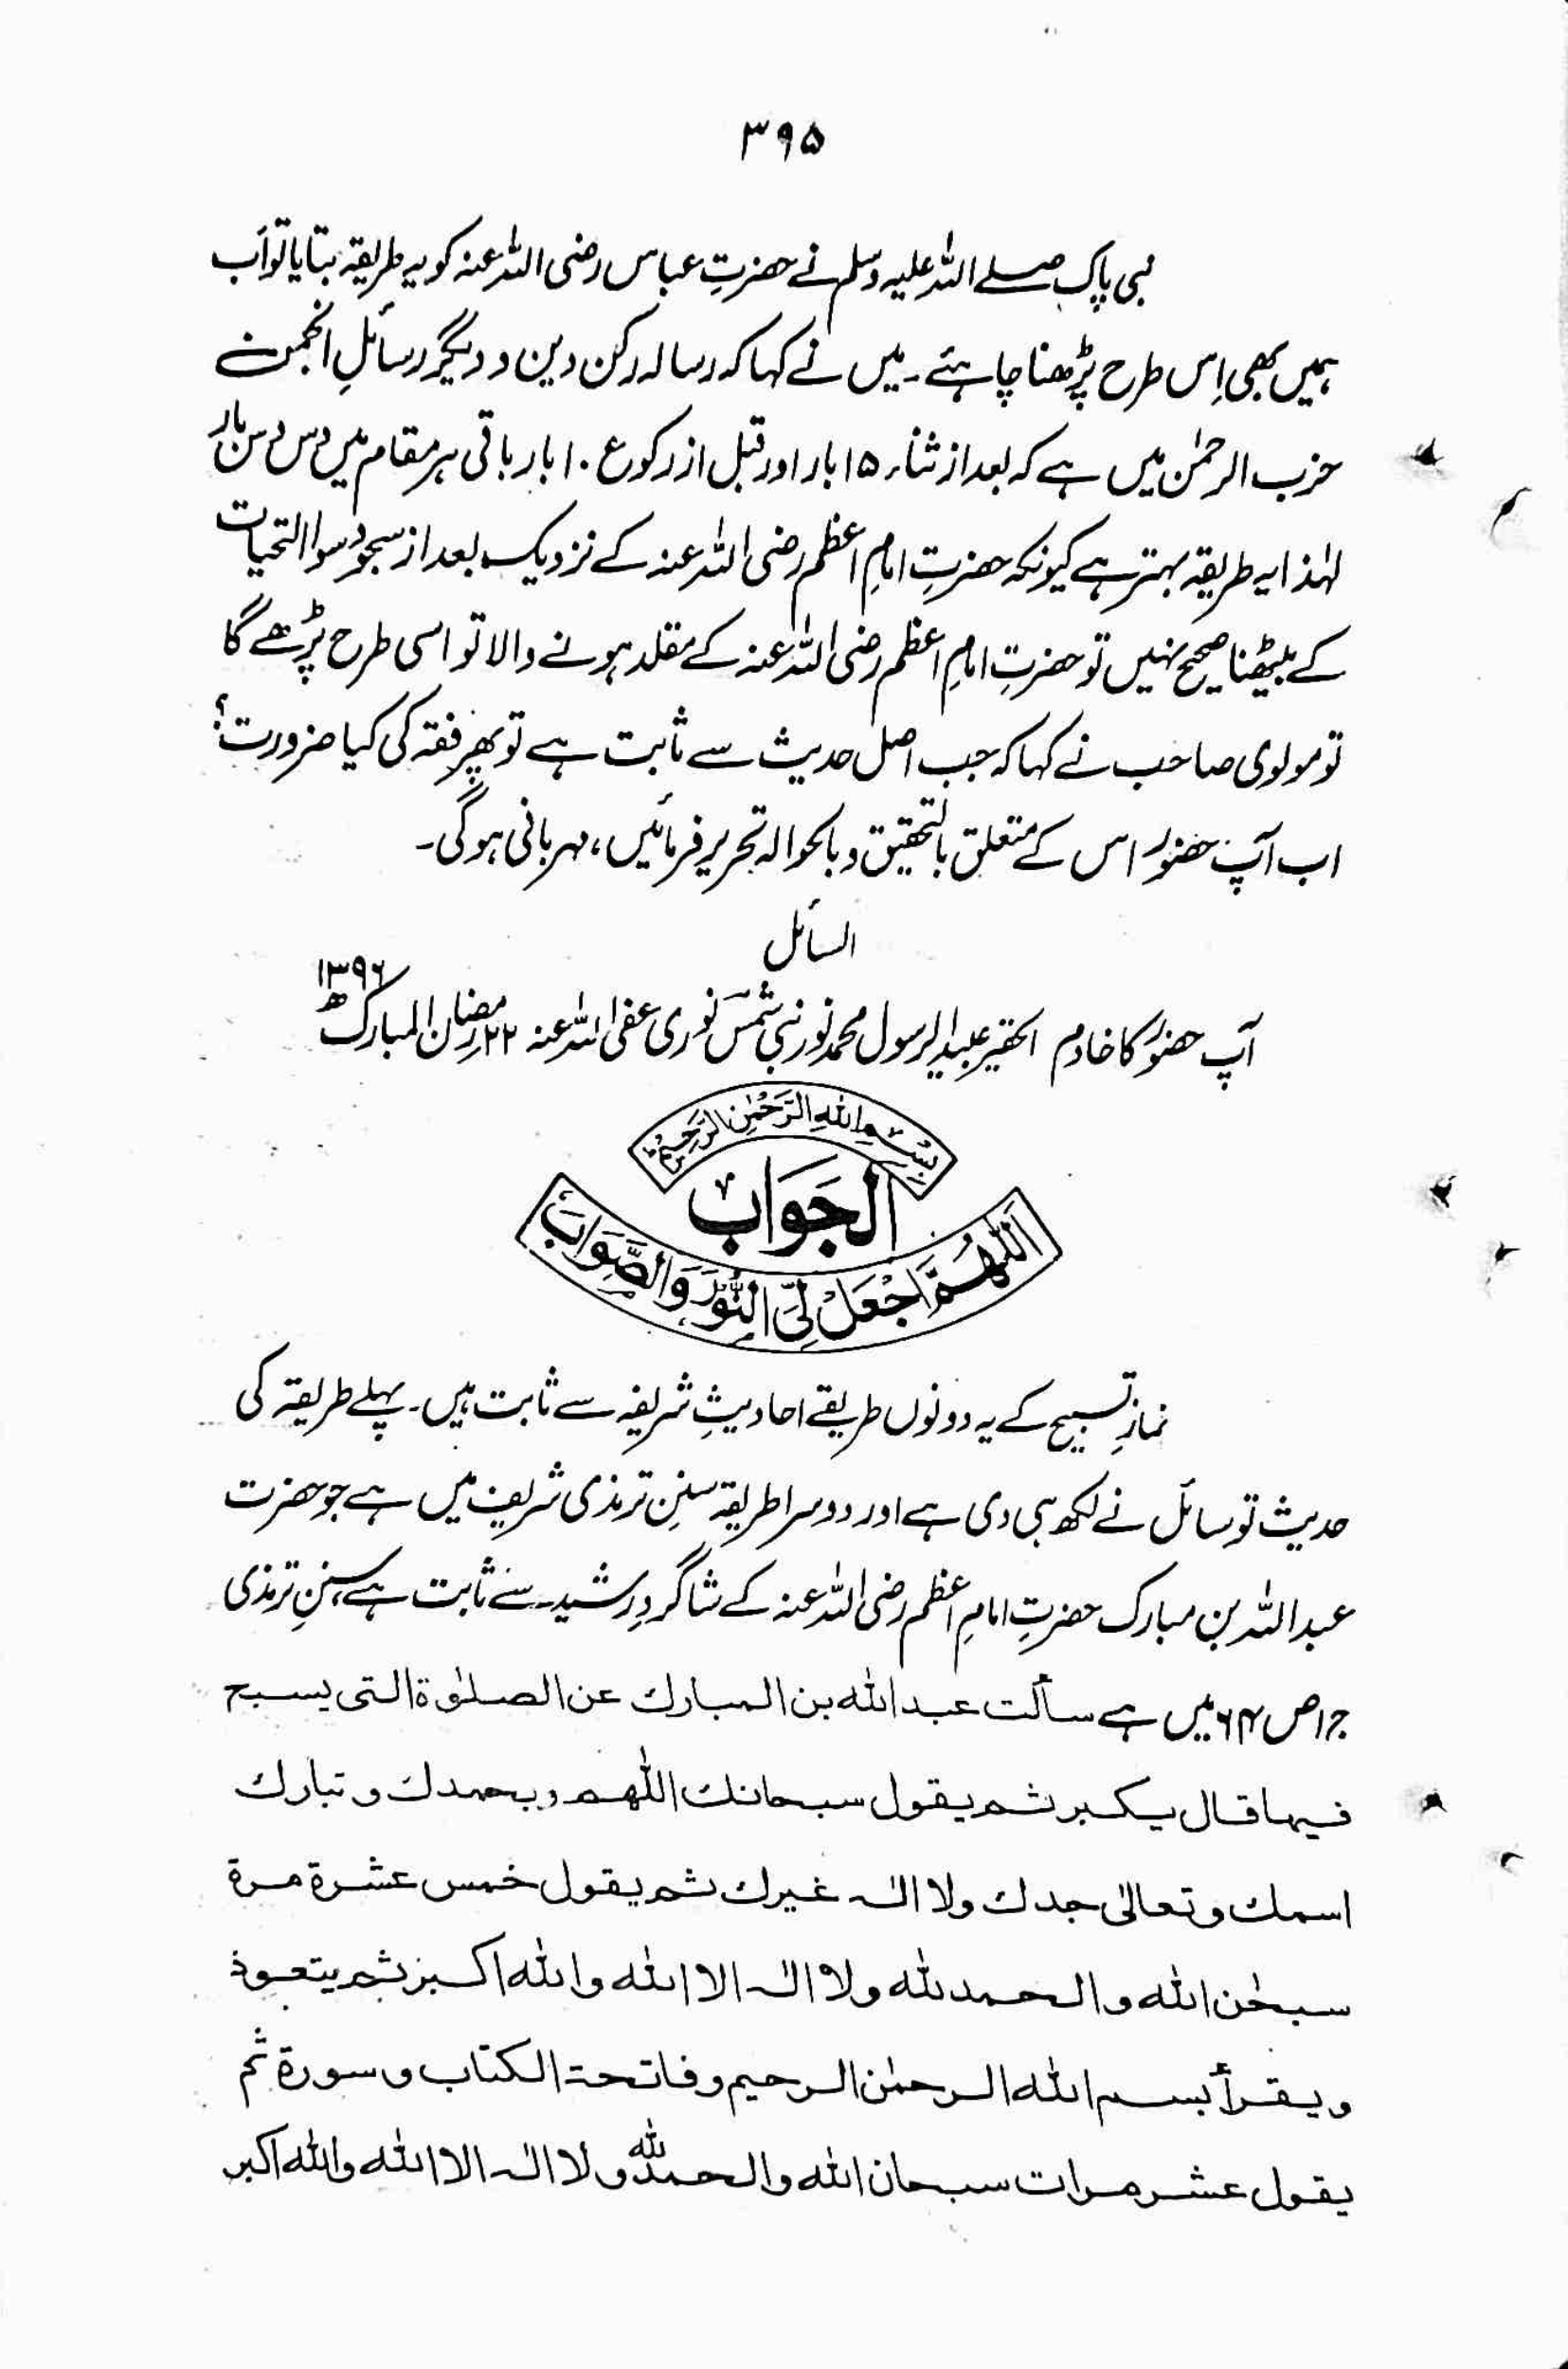 ۳۹۵
نبی پاک صلے اللہ علیہ وسلم نے حضرتِ عباس رضی اللہ عنہ کو یہ طریقہ بتایا تو اب
ہمیں بھی اِس طرح پڑھنا چاہئے۔ میں نے کہا کہ رسالہ رکن دین و دیگر رسائلِ انجمن
حزب الرحمٰن میں ہے کہ بعد از ثناء ۱۵ بار اور قبل از رکوع ۱۰ بار باقی ہر مقام میں دس دس بار
لہٰذا یہ طریقہ بہتر ہے کیونکہ حضرتِ امامِ اعظم رضی اللہ عنہ کے نزدیک بعد از سجود سوا التحیات
کے بیٹھنا صحیح نہیں تو حضرتِ امامِ اعظم رضی اللہ عنہ کے مقلد ہونے والا تو اسی طرح پڑھے گا
تو مولوی صاحب نے کہا کہ جب اصل حدیث سے ثابت ہے تو پھر فقہ کی کیا ضرورت؟
اب آپ حضور اس کے متعلق بالتحقیق و بالحوالہ تحریر فرمائیں، مہربانی ہوگی۔
السائل
آپ حضور کا خادم الحقیر عبد الرسول محمد نور نبی شمس نوری عفی اللہ عنہ ۲۲ رمضان المبارک ۱۳۹۶ھ
بِسْمِ اللهِ الرَّحْمٰنِ الرَّحِيْمِ
الجَوَابُ
اَللّٰهُمَّ اجْعَلْ لِّیَ النُّوْرَ وَالصَّوَابَ
نمازِ تسبیح کے یہ دونوں طریقے احادیثِ شریفہ سے ثابت ہیں۔ پہلے طریقہ کی
حدیث تو سائل نے لکھ ہی دی ہے اور دوسرا طریقہ سننِ ترمذی شریف میں ہے جو حضرت
عبد اللہ بن مبارک حضرتِ امامِ اعظم رضی اللہ عنہ کے شاگردِ رشید سے ثابت ہے، سننِ ترمذی
ج۱ ص۶۴ میں ہے سألت عبد الله بن المبارك عن الصلوٰة التی یسبح
فیها قال یکبر ثم یقول سبحانك اللّٰهم وبحمدك وتبارك
اسمك وتعالیٰ جدك ولا الٰه غیرك ثم یقول خمس عشرة مرة
سبحٰن الله والحمد لله ولا الٰه الا الله والله اکبر ثم یتعوذ
ویقرأ بسم الله الرحمٰن الرحیم وفاتحة الکتاب وسورة ثم
یقول عشر مرات سبحان الله والحمد لله ولا الٰه الا الله والله اکبر